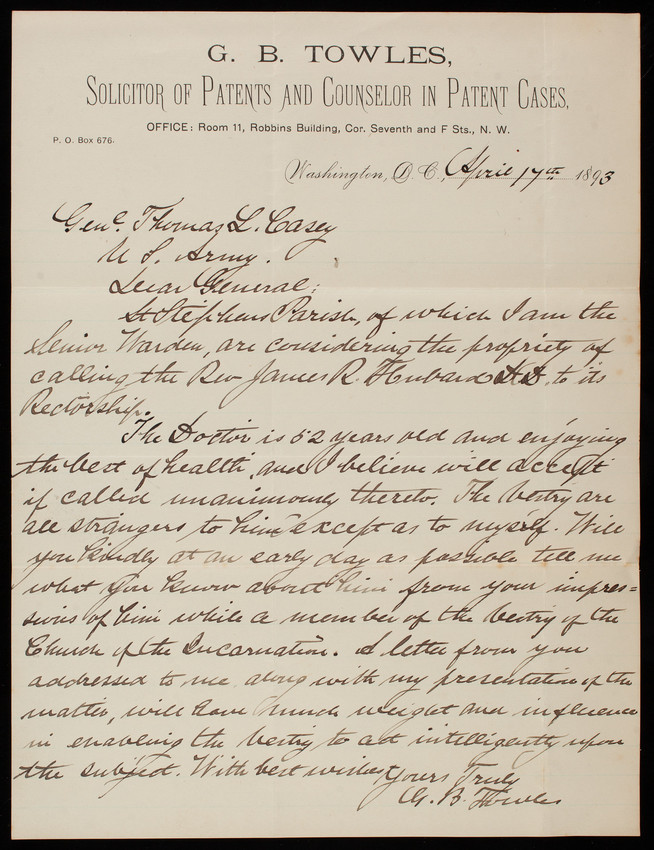 G. B. TOWLES,
SOLICITOR OF PATENTS AND COUNSELOR IN PATENT CASES,
OFFICE: Room 11, Robbins Building, Cor. Seventh and F Sts., N. W.
P. O. Box 676.
Washington, D. C., April 17th 1893
Genl. Thomas L. Casey
U S. Army.
Dear General:
St Stephens Parish, of which I am the
Senior Warden, are considering the propriety of
calling the Rev James R. Hubard D.D. to its
Rectorship.
The Doctor is 52 years old and enjoying
the best of health, and I believe will accept
if called unanimously thereto. The Vestry are
all strangers to him except as to myself. Will
you kindly at an early day as possible tell me
what you know about him from your impres=
sions of him while a member of the Vestry of the
Church of the Incarnation. A letter from you
addressed to me along with my presentation of the
matter, will have much weight and influence
in enabling the Vestry to act intelligently upon
the subject. With best wishes
Yours Truly
G. B. Towles